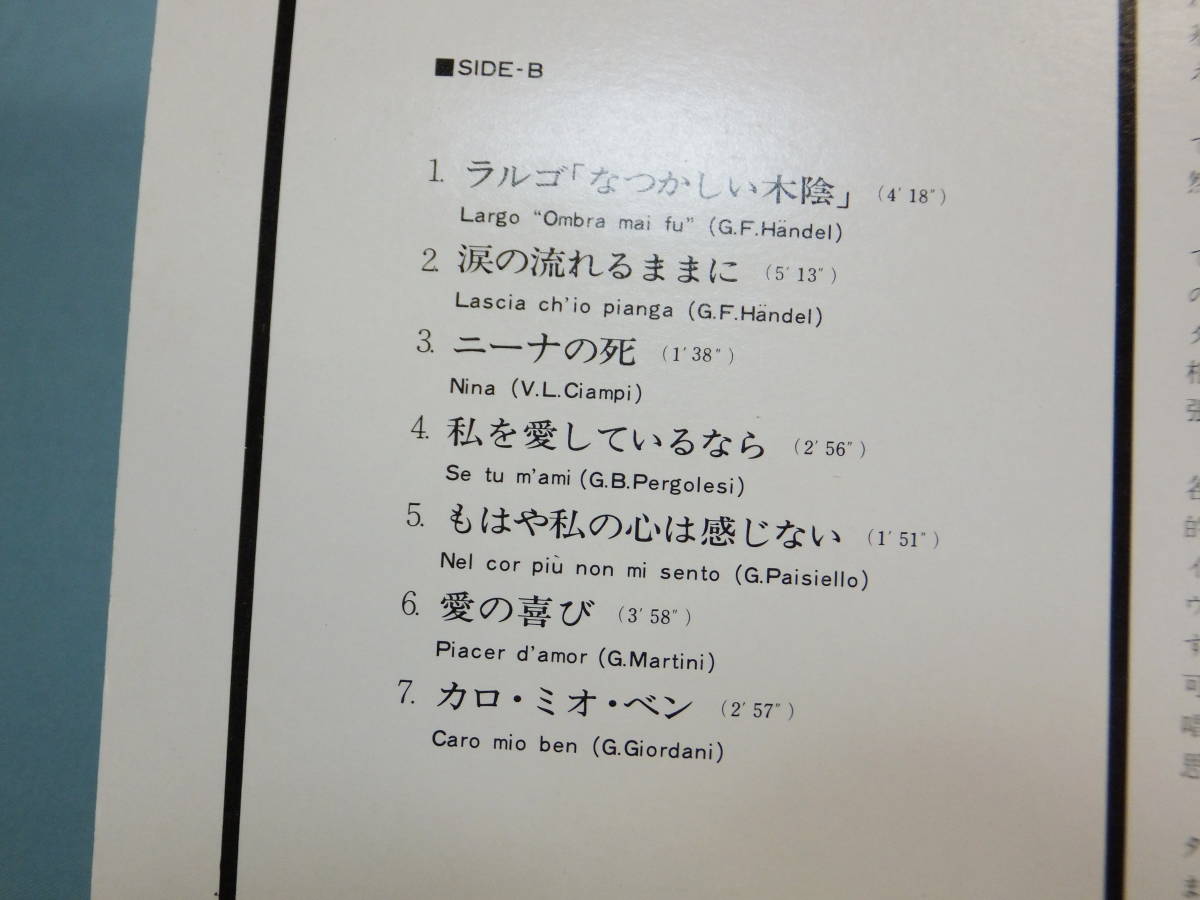 ■SIDE-B
1. ラルゴ「なつかしい木陰」 (4′18″)
Largo “Ombra mai fu” (G.F.Händel)
2. 涙の流れるままに (5′13″)
Lascia ch'io pianga (G.F.Händel)
3. ニーナの死 (1′38″)
Nina (V.L.Ciampi)
4. 私を愛しているなら (2′56″)
Se tu m'ami (G.B.Pergolesi)
5. もはや私の心は感じない (1′51″)
Nel cor più non mi sento (G.Paisiello)
6. 愛の喜び (3′58″)
Piacer d'amor (G.Martini)
7. カロ・ミオ・ベン (2′57″)
Caro mio ben (G.Giordani)